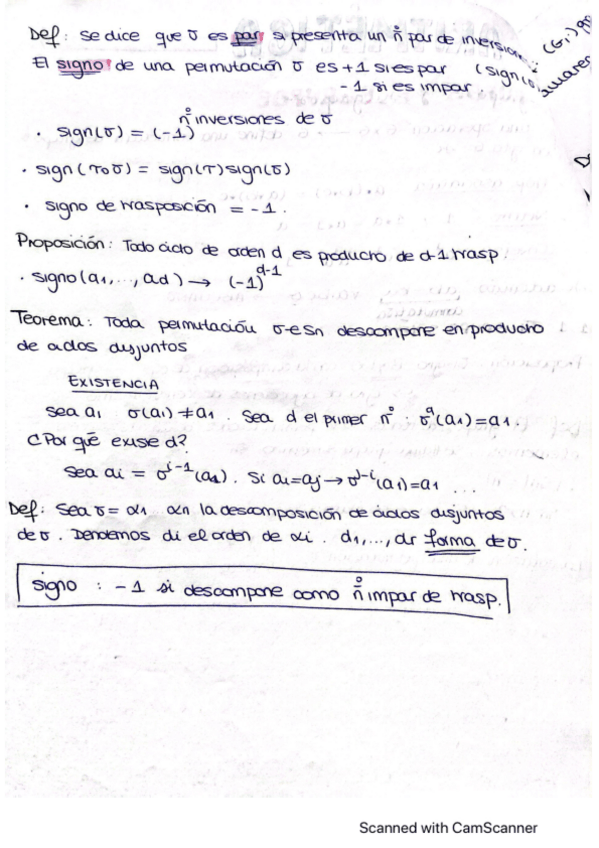 Def: Se dice que σ es par si presenta un nº par de inversiones
El signo de una permutación σ es +1 si es par
-1 si es impar.
· sign(σ) = (-1)^nº inversiones de σ
· sign(τoσ) = sign(τ)sign(σ)
· signo de trasposición = -1.
Proposición: Todo ciclo de orden d es producto de d-1 trasp.
· signo(a1,...,ad) → (-1)^d-1
Teorema: Toda permutación σ∈Sn descompone en producto
de ciclos disjuntos
EXISTENCIA
Sea a1 : σ(a1) ≠ a1. Sea d el primer nº : σ^d(a1)=a1.
¿Por qué existe d?
Sea ai = σ^i-1(a1). Si ai=aj → σ^j-i(a1)=a1 ...
Def: Sea σ = α1 αn la descomposición de ciclos disjuntos
de σ. Denotemos di el orden de αi. d1,...,dr forma de σ.
signo : -1 si descompone como nº impar de trasp.
Scanned with CamScanner